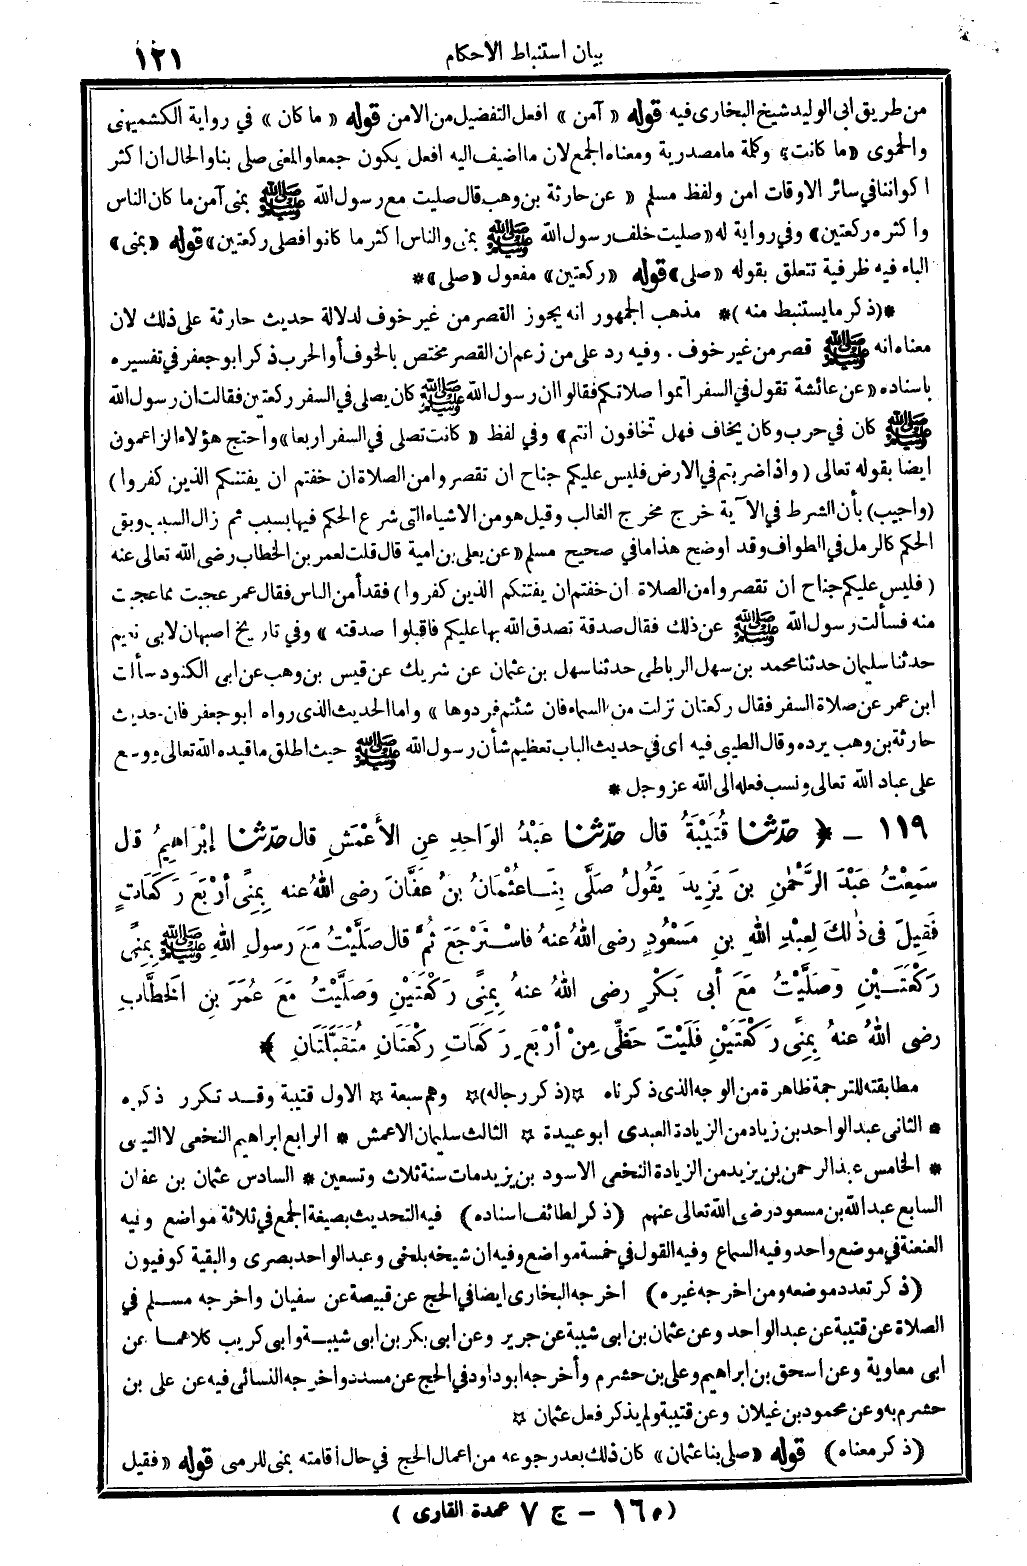 بيان استنباط الأحكام ١٢١
من طريق ابى الوليد شيخ البخارى فيه قوله « آمن » افعل التفضيل من الامن قوله « ما كان » في رواية الكشميهنى
والحموى « ما كانت » وكلمة ما مصدرية ومعناه الجمع لان ما اضيف اليه افعل يكون جمعا والمعنى صلى بنا والحال ان اكثر
اكواننا في سائر الاوقات امن ولفظ مسلم « عن حارثة بن وهب قال صليت مع رسول الله ﷺ بمنى آمن ما كان الناس
واكثره ركعتين » وفي رواية له « صليت خلف رسول الله ﷺ بمنى والناس اكثر ما كانوا فصلى ركعتين » قوله « بمنى »
الباء فيه ظرفية تتعلق بقوله « صلى » قوله « ركعتين » مفعول « صلى » *
*( ذكر ما يستنبط منه )* مذهب الجمهور انه يجوز القصر من غير خوف لدلالة حديث حارثة على ذلك لان
معناه انه ﷺ قصر من غير خوف . وفيه رد على من زعم ان القصر مختص بالخوف أو الحرب ذكر ابو جعفر في تفسيره
باسناده « عن عائشة تقول في السفر اتموا صلاتكم فقالوا ان رسول الله ﷺ كان يصلى في السفر ركعتين فقالت ان رسول الله
ﷺ كان في حرب وكان يخاف فهل تخافون انتم » وفي لفظ « كانت تصلى في السفر اربعا » واحتج هؤلاء الزاعمون
ايضا بقوله تعالى ( واذا ضربتم في الارض فليس عليكم جناح ان تقصروا من الصلاة ان خفتم ان يفتنكم الذين كفروا )
( واجيب ) بأن الشرط في الآية خرج مخرج الغالب وقيل هو من الاشياء التى شرع الحكم فيها بسبب ثم زال السبب وبقى
الحكم كالرمل في الطواف وقد اوضح هذا ما في صحيح مسلم « عن يعلى بن امية قال قلت لعمر بن الخطاب رضى الله تعالى عنه
( فليس عليكم جناح ان تقصروا من الصلاة ان خفتم ان يفتنكم الذين كفروا ) فقد أمن الناس فقال عمر عجبت مما عجبت
منه فسألت رسول الله ﷺ عن ذلك فقال صدقة تصدق الله بها عليكم فاقبلوا صدقته » وفي تاريخ اصبهان لابى نعيم
حدثنا سليمان حدثنا محمد بن سهل الرباطى حدثنا سهل بن عثمان عن شريك عن قيس بن وهب عن ابى الكنود سألت
ابن عمر عن صلاة السفر فقال ركعتان نزلت من السماء فان شئتم فردوها » واما الحديث الذى رواه ابو جعفر فان حديث
حارثة بن وهب يرده وقال الطيبى فيه اى في حديث الباب تعظيم شأن رسول الله ﷺ حيث اطلق ما قيده الله تعالى ووسع
على عباد الله تعالى ونسب فعله الى الله عز وجل *
١١٩ ـ ﴿ حَدَّثنا قُتَيْبَةُ قال حدَّثنا عَبْدُ الوَاحِدِ عنِ الأَعْمَشِ قال حدَّثنا إبْرَاهِيمُ قال
سَمِعْتُ عَبْدَ الرَّحْمٰنِ بنَ يَزِيدَ يَقُولُ صَلَّى بِنَا عُثْمَانُ بنُ عَفَّانَ رضى اللهُ عنه بِمِنًى أرْبَعَ رَكَعَاتٍ
فَقِيلَ فى ذٰلِكَ لِعبْدِ اللهِ بنِ مَسْعُودٍ رضى اللهُ عنهُ فاسْتَرْجَعَ ثُمَّ قال صَلَّيْتُ مَعَ رسولِ اللهِ ﷺ بِمِنًى
رَكْعَتَيْنِ وَصَلَّيْتُ مَعَ أبى بَكْرٍ رضى اللهُ عنهُ بِمِنًى رَكْعَتَيْنِ وَصَلَّيْتُ مَعَ عُمَرَ بنِ الخَطَّابِ
رضى اللهُ عنهُ بِمِنًى رَكْعَتَيْنِ فَلَيْتَ حَظِّى مِنْ أرْبَعِ رَكَعَاتٍ رَكْعَتَانِ مُتَقَبَّلَتَانِ ﴾ *
مطابقته للترجمة ظاهرة من الوجه الذى ذكرناه ☆( ذكر رجاله )☆ وهم سبعة ☆ الاول قتيبة وقد تكرر ذكره
* الثانى عبد الواحد بن زياد من الزيادة العبدى ابو عبيدة ☆ الثالث سليمان الاعمش * الرابع ابراهيم النخعى لا التيمى
* الخامس عبد الرحمن بن يزيد من الزيادة النخعى الاسود بن يزيد مات سنة ثلاث وتسعين * السادس عثمان بن عفان
السابع عبد الله بن مسعود رضى الله تعالى عنهم ( ذكر لطائف اسناده ) فيه التحديث بصيغة الجمع في ثلاثة مواضع وفيه
العنعنة في موضع واحد وفيه السماع وفيه القول في خمسة مواضع وفيه ان شيخه بلخى وعبد الواحد بصرى والبقية كوفيون
( ذكر تعدد موضعه ومن اخرجه غيره ) اخرجه البخارى ايضا في الحج عن قبيصة عن سفيان واخرجه مسلم في
الصلاة عن قتيبة عن عبد الواحد وعن عثمان بن ابى شيبة عن جرير وعن ابى بكر بن ابى شيبة وابى كريب كلاهما عن
ابى معاوية وعن اسحق بن ابراهيم وعلى بن خشرم وأخرجه ابو داود في الحج عن مسدد واخرجه النسائى فيه عن على بن
خشرم به وعن محمود بن غيلان وعن قتيبة ولم يذكر فعل عثمان ☆
( ذكر معناه ) قوله « صلى بنا عثمان » كان ذلك بعد رجوعه من اعمال الحج في حال اقامته بمنى للرمى قوله « فقيل
( م ١٦ ـ ج ٧ عمدة القارى )